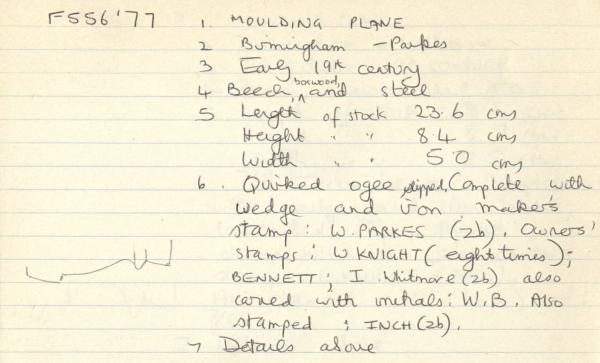 F556'77
1. MOULDING PLANE
2 Birmingham - Parkes
3 Early 19th century
4 Beech, boxwood, and steel
5 Length of stock 23.6 cms
Height " " 8.4 cms
Width " " 5.0 cms
6. Quirked ogee, slipped, Complete with
wedge and iron. maker's
stamp: W. PARKES (2b). Owners'
stamps: W KNIGHT (eight times);
BENNETT; I. Whitmore (2b) also
carved with initials: W.B. Also
stamped : INCH (2b).
7 Details above